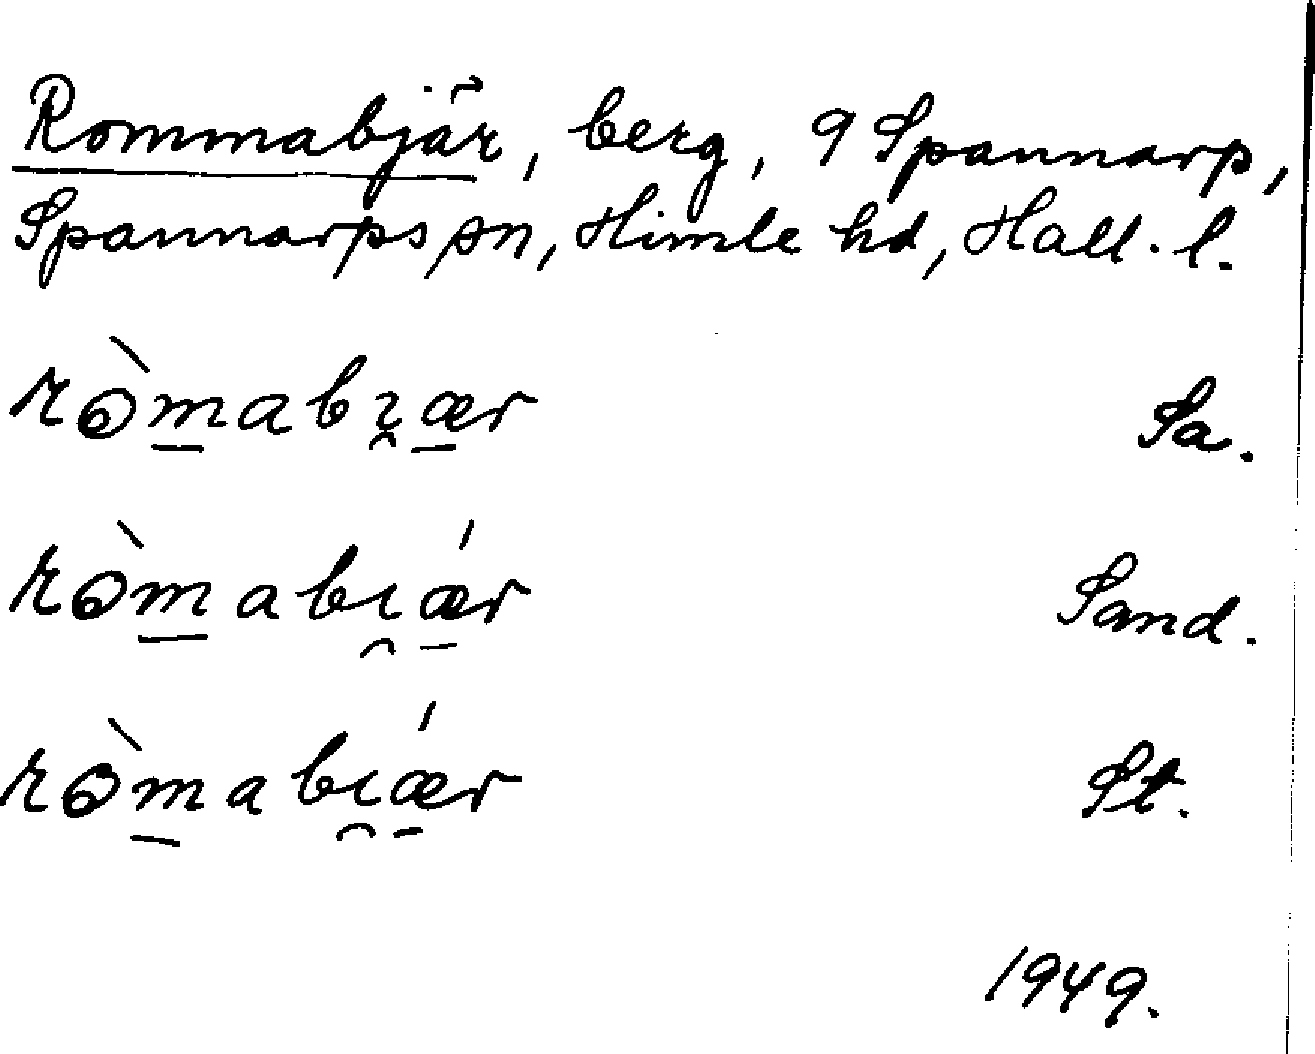 Rommabjär, berg, 9 Spannarp,
Spannarps sn, Himle hd, Hall. l.
ròm̲abı̯æ̲r Sa.
ròm̲abı̯ǽ̲r Sand.
ròm̲abı̯ǽ̲r St.
1949.